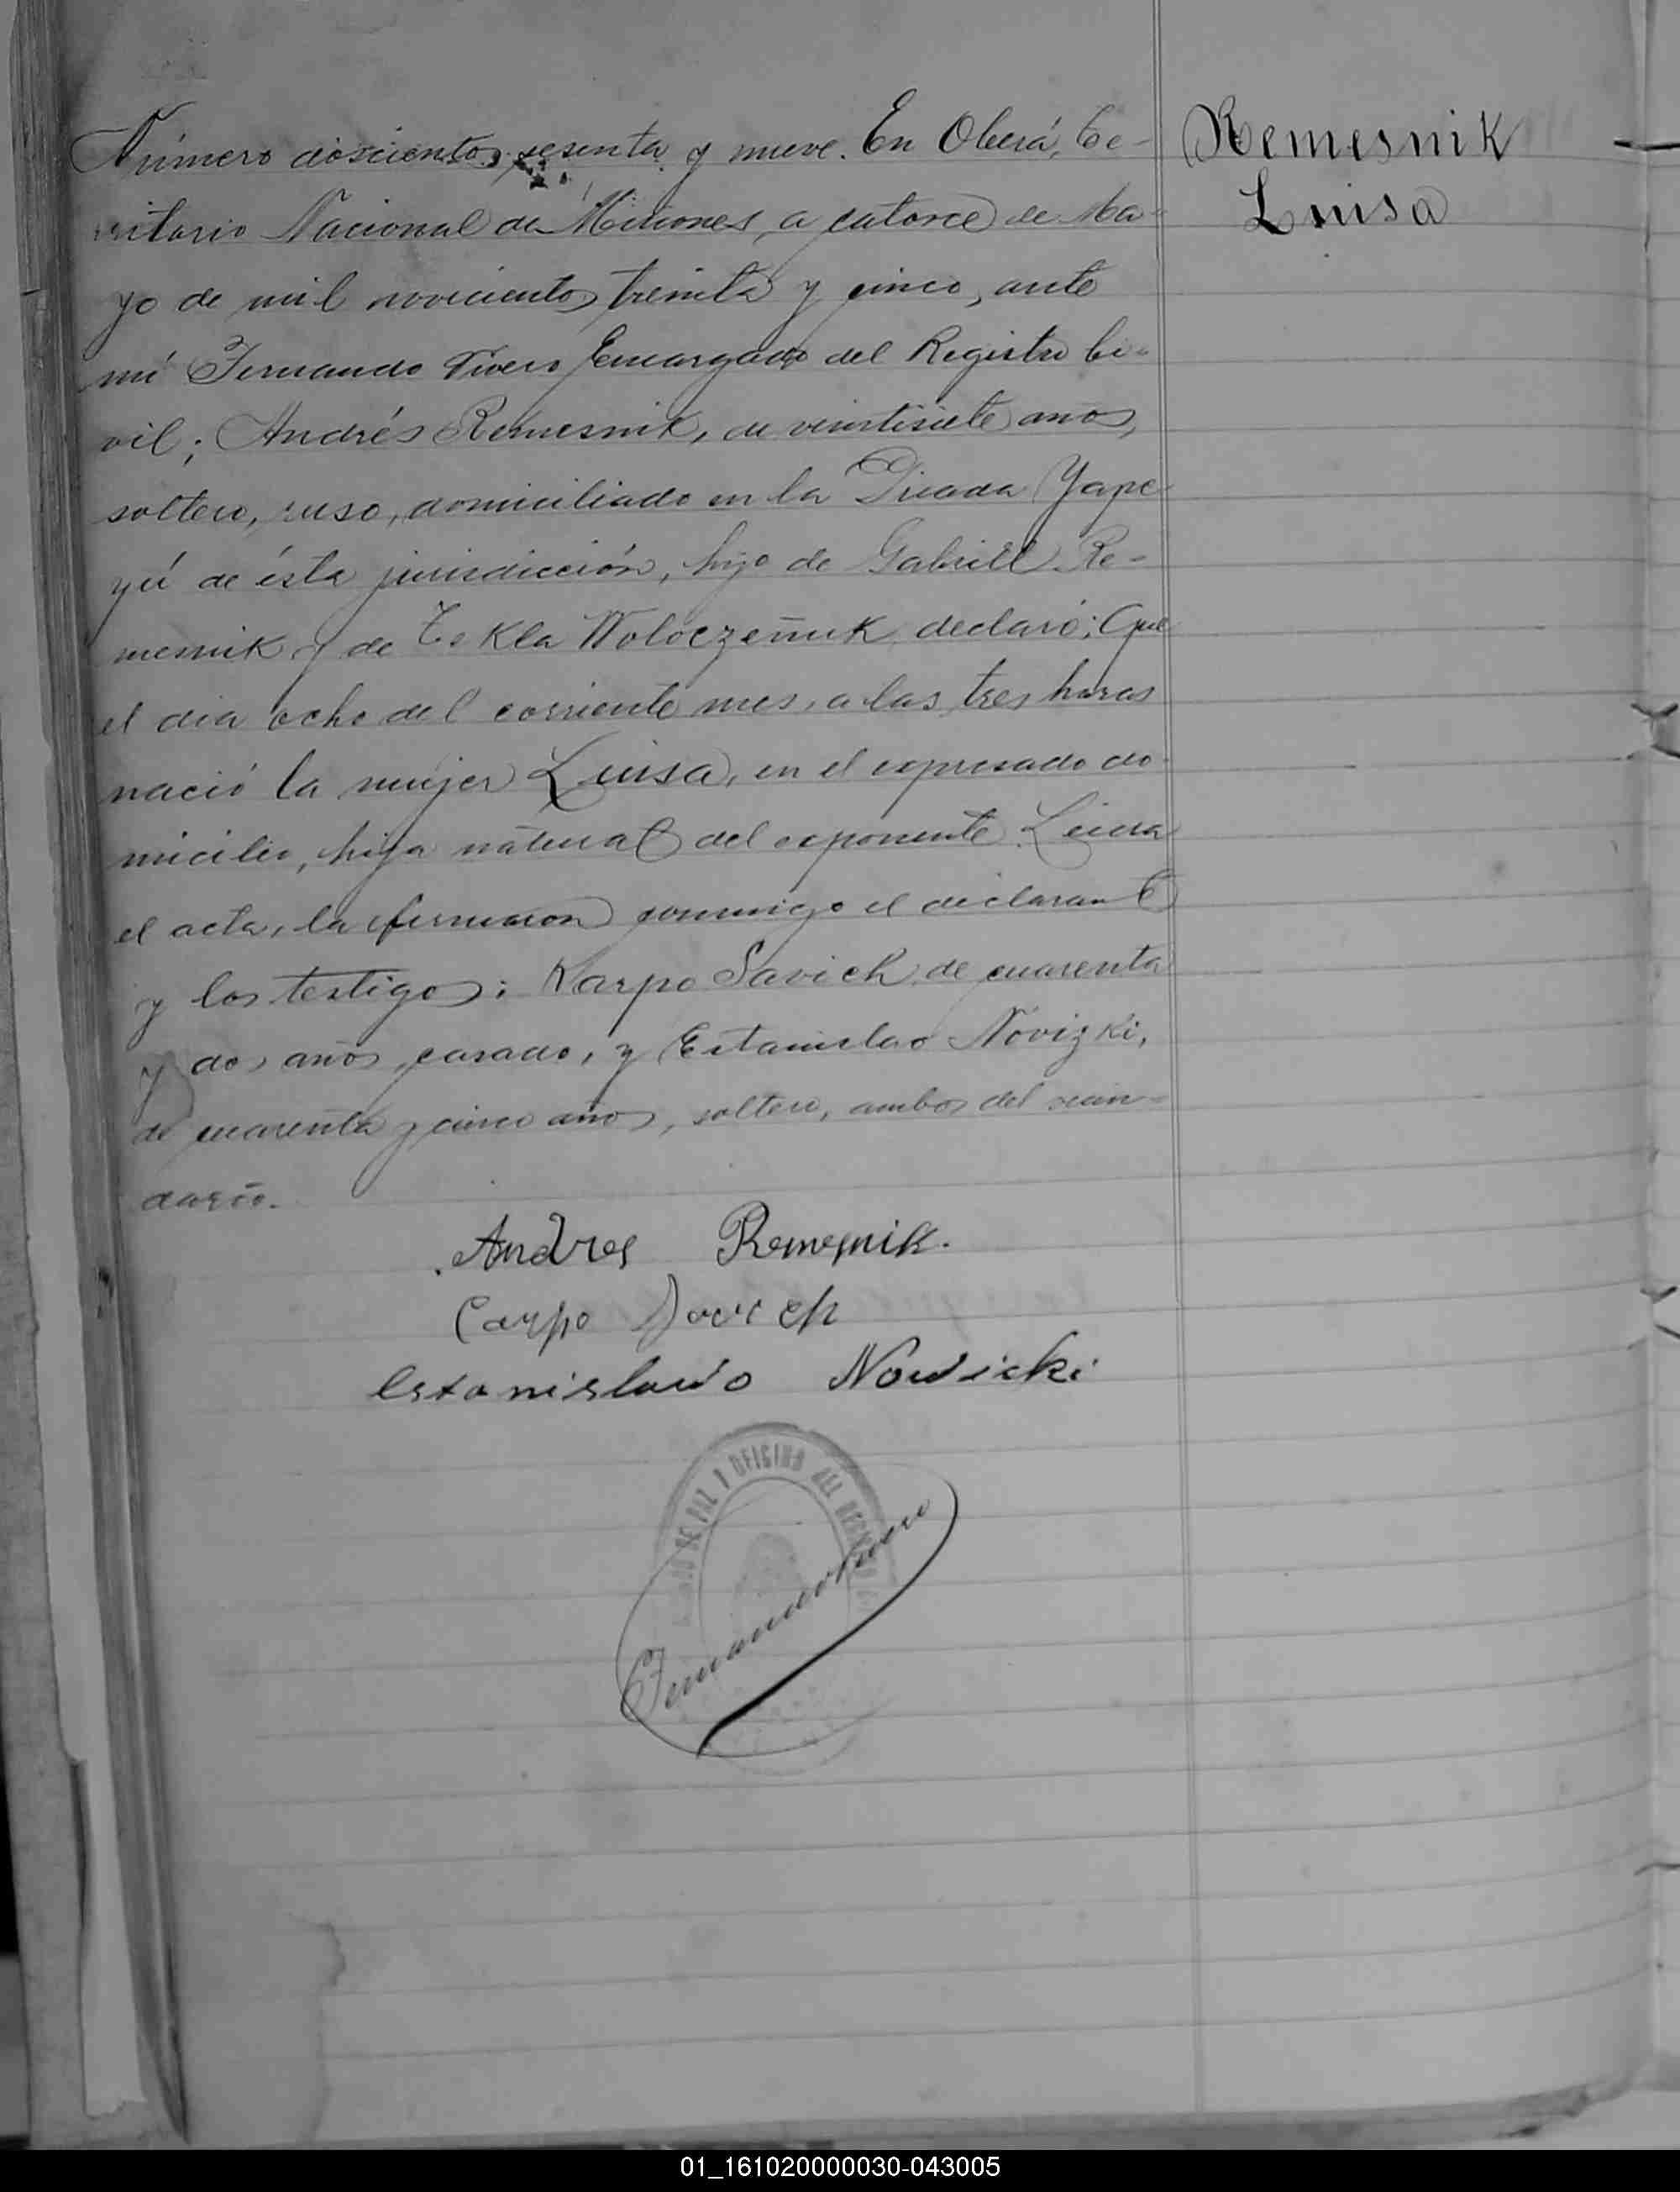 Número doscientos sesenta y nueve. En Oberá, Te-
rritorio Nacional de Misiones, a catorce de Ma-
yo de mil novecientos treinta y cinco, ante
mí Fernando Vivero Encargado del Registro Ci-
vil; Andrés Remesnik, de veintisiete años,
soltero, ruso, domiciliado en la Picada Yape
yú de ésta jurisdicción, hijo de Gabriel Re-
mesnik y de Tekla Woloczeñuk declaró: Que
el dia ocho del corriente mes, a las tres horas
nació la mujer Luisa, en el expresado do-
micilio, hija natural del exponente. Leida
el acta, la firmaron conmigo el declarante
y los testigos: Karpo Savich de cuarenta
y dos años, casado, y Estanislao Novizki,
de cuarenta y cinco años, soltero, ambos del vecin-
dario.
Remesnik
Luisa
Andres Remesnik.
Carpo Savich
Estanislavo Nowicki
DE PAZ Y OFICINA DEL
01_161020000030-043005